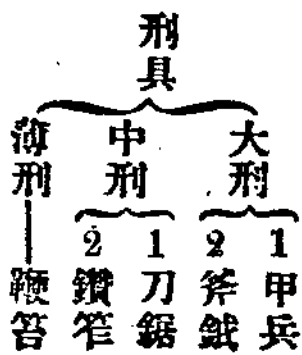 刑具
大刑
1 甲兵
2 斧鉞
中刑
1 刀鋸
2 鑽笮
薄刑
鞭笞